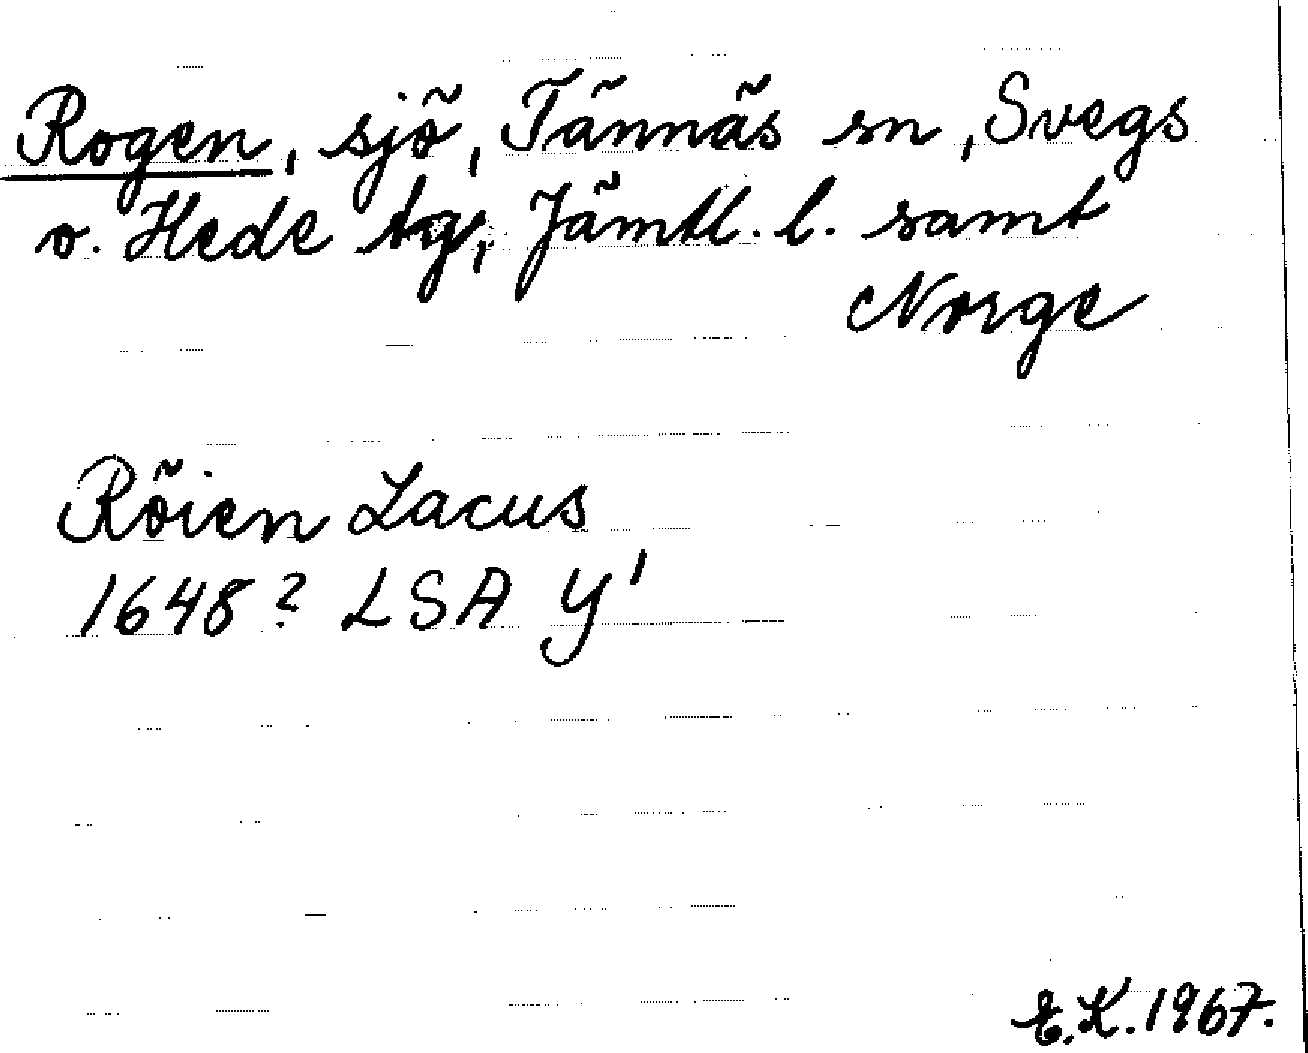 Rogen, sjö, Tännäs sn, Svegs
o. Hede tg, Jämtl. l. samt
Norge
Röien Lacus
1648? LSA Y'
E.K. 1967.